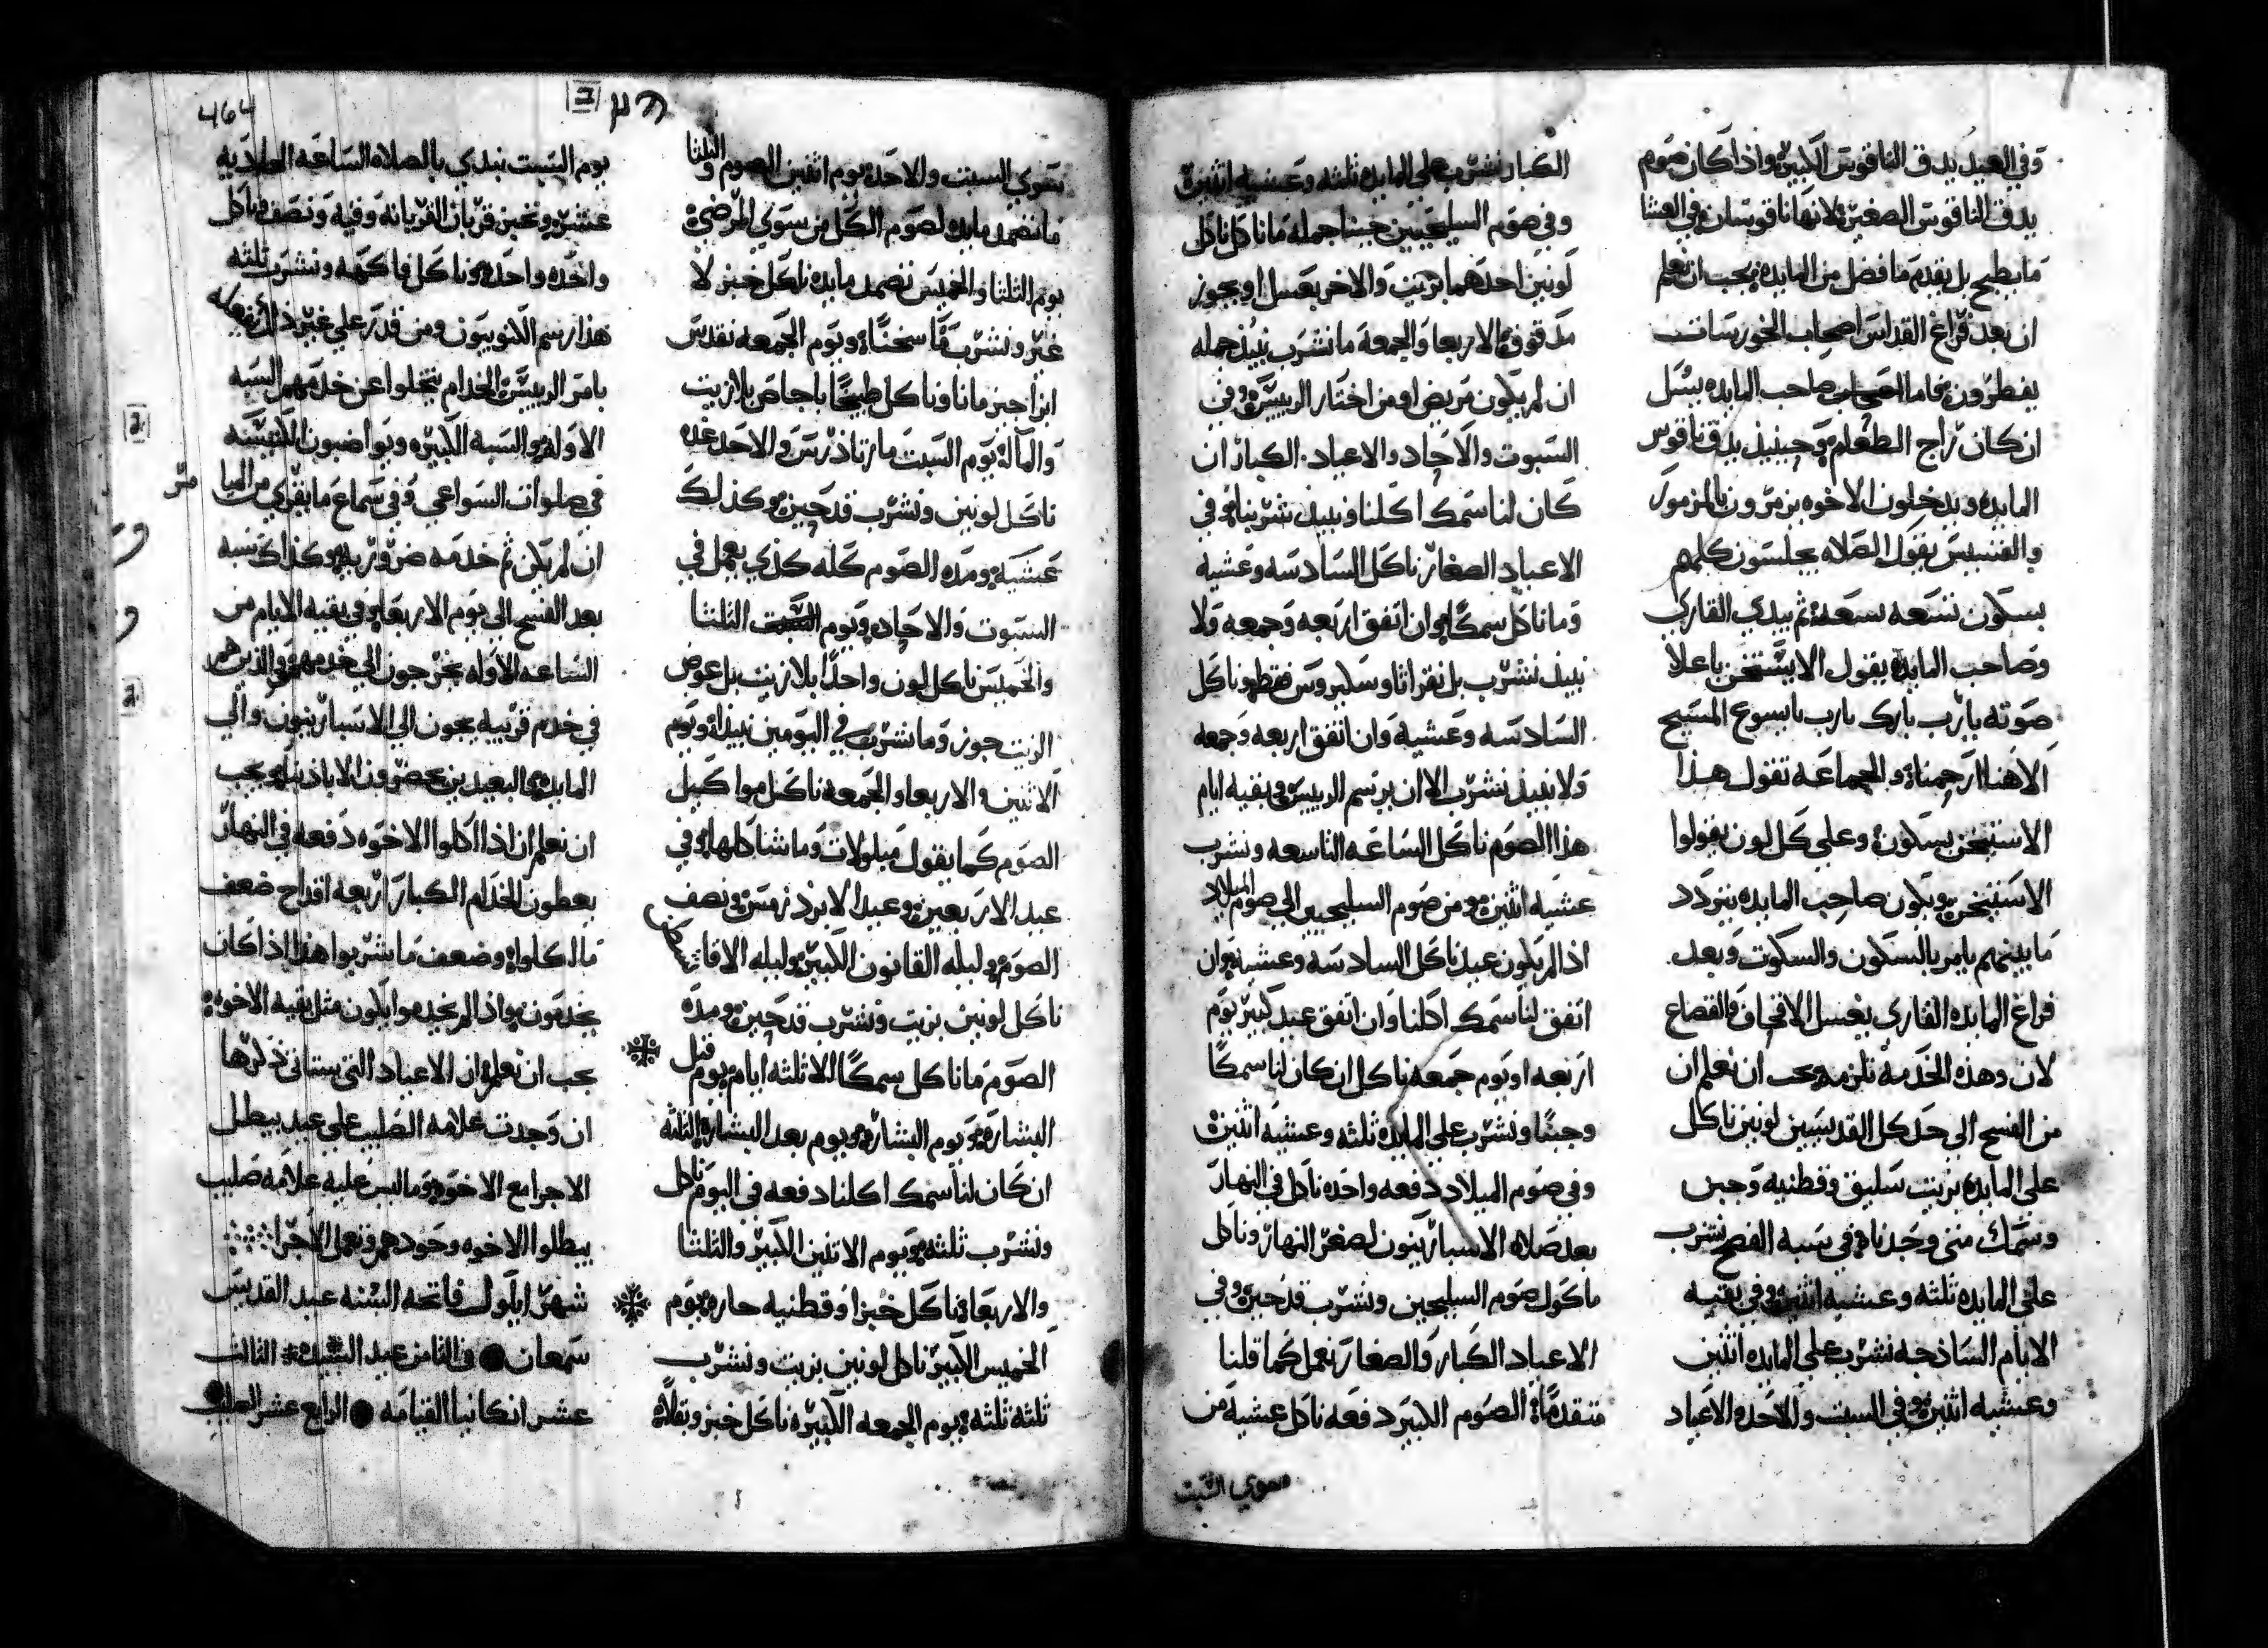 وفي العيد يدق الناقوس الكبيره واذا كان صوم
يدق الناقوس الصغيره لانها ناقوسان وفي العشا
ما يطبخ بل يقدم ما فضل من المايده يجب ان نعلم
ان بعد فراغ القداس اصحاب الخورسات
يفطرون فاما صاحب المايده يسل
ان كان راج الطعام وحينيذ يدق ناقوس
المايده ويدخلون الاخوه يزمرون بالمزمور
والقسيس يقول الصلاه يجلسون كلهم
بسكون تسعه تسعه ثم يبدي القاري
وصاحب المايده يقول الايستيخن باعلا
صوته يارب بارك يارب يايسوع المسيح
الاهنا ارحمنا والجماعه تقول هذا
الاستيخن بسكون وعلى كل لون يقولوا
الاستيخن ويكون صاحب المايده يتردد
ما بينهم يامر بالسكون والسكوت وبعد
فراغ المايده القاري يغسل الاقحاف والقصاع
لان وهذه الخدمه تلزمه يجب ان نعلم ان
من الفسح الى حد كل القديسين لونين ناكل
على المايده بزيت سليق وقطنيه وجبن
وسمك متى وجدناه في سبه الفصح نشرب
على المايده ثلثه وعشيه اثنين وفي بقيه
الايام الساذجه نشرب على المايده اثنين
وعشيه اثنين وفي السبت والاحد والاعياد
الكبار نشرب على المايده ثلثه وعشيه اثنين
وفي صوم السليحيين جبنا جمله ما ناكل ناكل
لونين احدهما بزيت والاخر بعسل او بجوز
مدقوق الاربعا والجمعه ما نشرب نبيذ جمله
ان لم يكون مريض او من اختار الرييس وفي
السبوت والاحاد والاعياد الكبار ان
كان لنا سمك اكلنا ونبيذ شربنا وفي
الاعياد الصغار ناكل السادسه وعشيه
وما ناكل سمكا وان اتفق اربعه وجمعه ولا
نبيذ نشرب بل نقرا اناوسكيروس فقط وناكل
السادسه وعشيه وان اتفق اربعه وجمعه
ولا نبيذ نشرب الا ان يرسم الرييس في بقيه ايام
هذا الصوم ناكل الساعه التاسعه ونشرب
عشيه اثنين ومن صوم السليحيين الى صوم الميلاد
اذا لم يكون عيد ناكل السادسه وعشيه وان
اتفق لنا سمك اكلنا وان اتفق عيد كبير يوم
اربعه او يوم جمعه ناكل ان كان لنا سمكا
وجبنا ونشرب على المايده ثلثه وعشيه اثنين
وفي صوم الميلاد دفعه واحده ناكل في النهار
بعد صلاه الاسبارينون لصغر النهار وناكل
ماكول صوم السليحين ونشرب قدحين وفي
الاعياد الكبار والصغار نعمل كما قلنا
متقدما الصوم الكبير دفعه ناكل عشيه من
سوي السبت
464
سوي السبت والاحد يوم اثنين الصوم والثلثا
ما نضمد مايده لصوم الكل من سوي المرضي
يوم الثلثا والخميس نضمد مايده ناكل خبز لا
غير ونشرب ما سخنا ويوم الجمعه نقدس
ابراجيزمانا وناكل طبيخا باجاص بلا زيت
والماله يوم السبت مار تاذرس والاحد غده
ناكل لونين ونشرب قدحين وكذلك
عشيه ومده الصوم كله كذي يعمل في
السبوت والاحاد ويوم الثلثا
والخميس ناكل لون واحدا بلا زيت بل عوض
الزيت جوز وما نشرب في اليومين نبيذا ويوم
الاثنين والاربعا والجمعه ناكل مواكيل
الصوم كما يقول مبلولات وما شاكلها وفي
عيد الاربعين وعيد الابرذرمس ونصف
الصوم وليله القانون الكبير وليله الاقاتسطن
ناكل لونين بزيت ونشرب قدحين ومده
الصوم ما ناكل سمكا الا ثلثه ايام يوم قبل
البشاره ويوم البشاره ويوم بعد البشاره الثلثه
ان كان لنا سمك اكلنا دفعه في اليوم ناكل
ونشرب ثلثه ويوم الاثنين الكبير والثلثا
والاربعا ناكل خبز او قطنيه حاره يوم
الخميس الكبير ناكل لونين بزيت ونشرب
ثلثه ثلثه يوم الجمعه الكبيره ناكل خبز وبقلا
يوم السبت نبدي بالصلاه الساعه الحاديه
عشره ونخبز قربان القربانه وقيه ونصف وناكل
واحده واحده وناكل فاكهه ونشرب ثلثه
هذا رسم القنوبيون ومن قدر على غير ذلك يفعله
يامر الرييس الخدام يتخلوا عن خدمهم السبه
الاوله والسبه الكبيره ويواضبون الكنيسه
في صلوات السواعي وفي سماع ما يقري من الميا
مر
ان لم يكن ثم خدمه ضروريه وكذلك سبه
بعد الفسح الى يوم الاربعا وفي بقيه الايام من
الساعه الاوله يخرجون الى خدمهم والذين هم
في خدم قريبه يجون الى الاسبارينون والى
المايده والبعيدين يحضرون الاباذنبا يجب
ان نعلم ان اذا اكلوا الاخوه دفعه في النهار
يعطون الخدام الكبار اربعه اقداح ضعف
ما اكلوا وضعف ما شربوا هذا اذا كان
يخدمون واذا لم يخدموا يكون مثل بقيه الاخوه
يجب ان نعلم ان الاعياد التي يستاني ذكرها
ان وجدت علامه الصليب على عيد يبطل
الاجرا مع الاخوه وما ليس عليه علامه صليب
يبطلوا الاخوه وحودهم وتعمل الاجرا
شهر ايلول فاتحه السنه عيد القديس
سمعان في الثامن عيد السيده الثالث
عشر انكانيا القيامه الرابع عشر الصليب